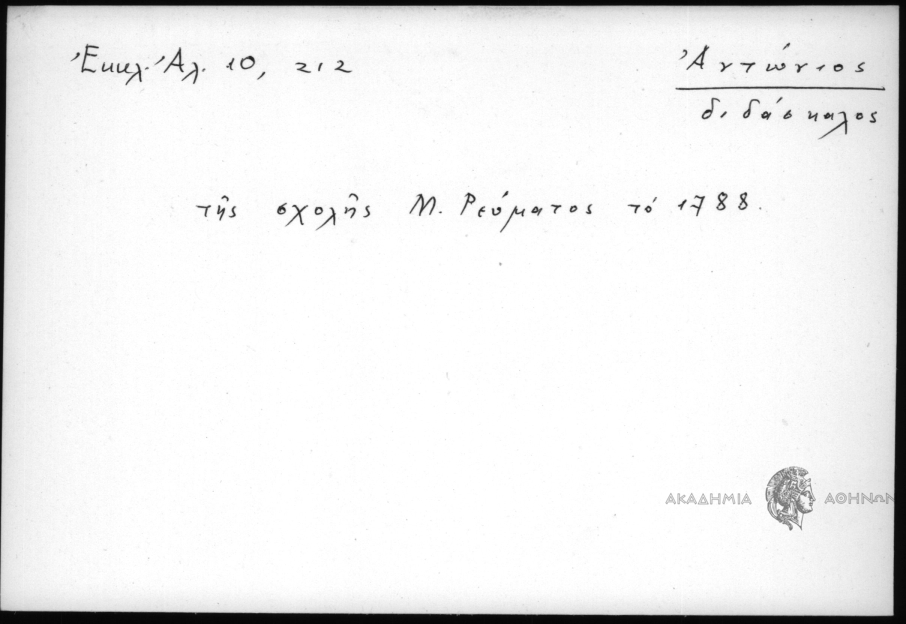 Ἐκκλ. Ἀλ. 10, 212
Ἀντώνιος
διδάσκαλος
τῆς σχολῆς Μ. Ρεύματος τό 1788.
ΑΚΑΔΗΜΙΑ ΑΘΗΝΩΝ